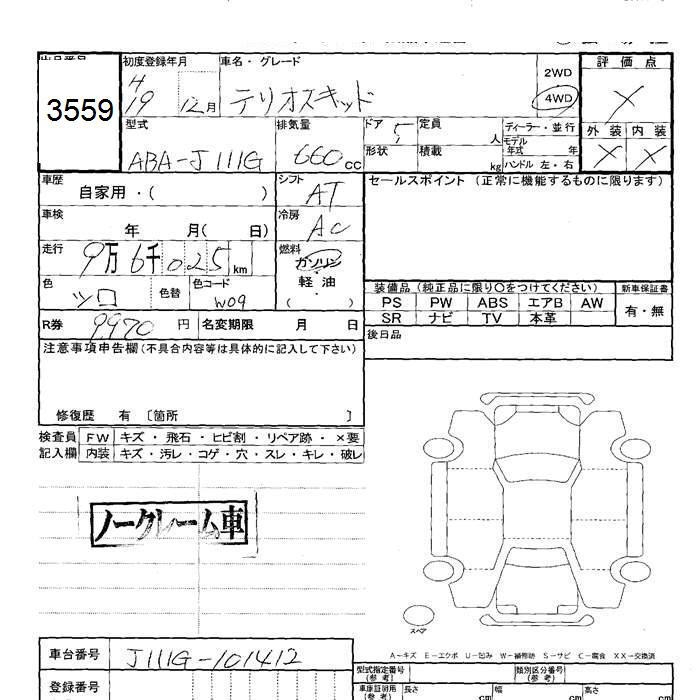 出品番号 初度登録年月 車名・グレード 評価点
3559 H19 12月 テリオスキッド 2WD 4WD ×
型式 排気量 ドア 5 定員 人 ディーラー・並行 外装 内装
ABA-J111G 660cc 形状 積載 kg モデル年式 年 × ×
ハンドル 左・右
車歴 シフト セールスポイント (正常に機能するものに限ります)
自家用・( ) AT
車検 冷房
年 月( 日) AC
走行 9万6千025km 燃料
ガソリン
色 シロ 色替 色コード W09 軽油
( )
装備品 (純正品に限り○をつけてください) 新車保証書
PS PW ABS エアB AW 有・無
SR ナビ TV 本革
R券 9,970 円 名変期限 月 日
後日品
注意事項申告欄(不具合内容等は具体的に記入して下さい)
修復歴 有 〔箇所 〕
検査員 FW キズ・飛石・ヒビ割・リペア跡・×要
記入欄 内装 キズ・汚レ・コゲ・穴・スレ・キレ・破レ
ノークレーム車
スペア
A-キズ E-エクボ U-凹み W-補修跡 S-サビ C-腐食 XX-交換済
車台番号 J111G-101412
型式指定番号(参考) 類別区分番号(参考)
登録番号
車庫証明用(参考) 長さ cm 幅 cm 高さ cm